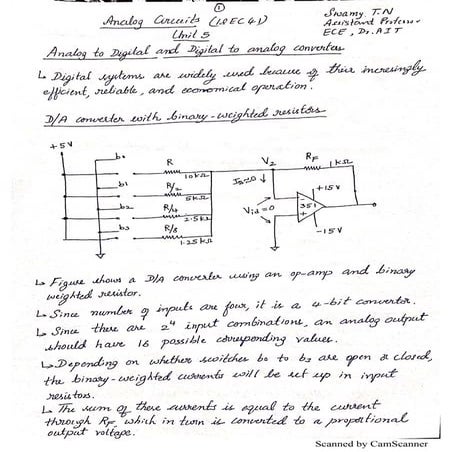 1
Analog Circuits (18EC41)
Unit 5
Swamy T.N
Assistant Professor
ECE, Dr.AIT
Analog to Digital and Digital to analog converters
↳ Digital systems are widely used because of their increasingly
efficient, reliable, and economical operation.
D/A converter with binary-weighted resistors
+5V
b0
R
10kΩ
b1
R/2
5kΩ
b2
R/4
2.5kΩ
b3
R/8
1.25kΩ
V2
RF
1kΩ
IB≃0 ↓
Vid=0
+15V
351
-15V
↳ Figure shows a D/A converter using an op-amp and binary
weighted resistor.
↳ Since number of inputs are four, it is a 4-bit converter.
↳ Since there are 2⁴ input combinations, an analog output
should have 16 possible corresponding values.
↳ Depending on whether switches b0 to b3 are open or closed,
the binary-weighted currents will be set up in input
resistors.
↳ The sum of these currents is equal to the current
through RF which in turn is converted to a proportional
output voltage.
Scanned by CamScanner